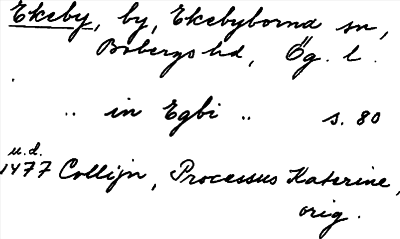 Ekeby, by, Ekebyborna sn,
Bobergs hd, Ög. l.
.. in Egbi .. s. 80
u.d.
1477 Collijn, Processus Katerine,
orig.